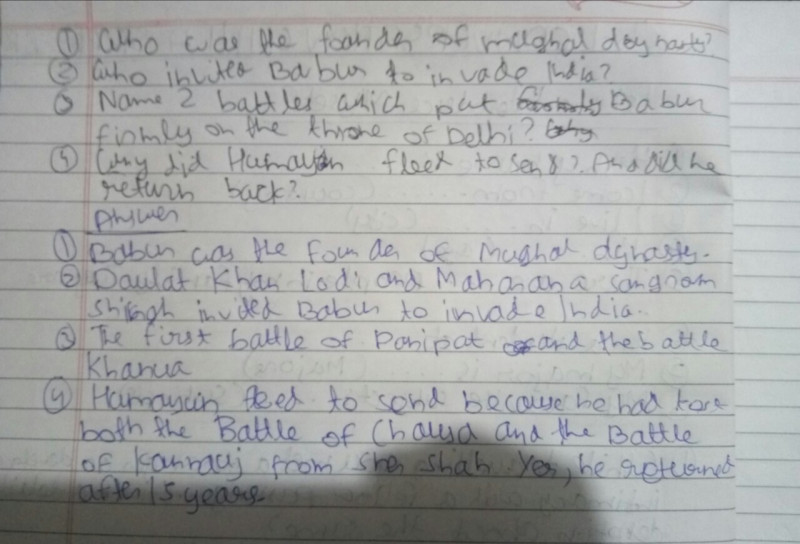 ① Who was the founder of mughal dynasty?
② Who invited Babur to invade India?
③ Name 2 battles which put Babur
firmly on the throne of Delhi?
④ Why did Humayun fleet to send? And did he
return back?
Answer
① Babur was the founder of Mughal dynasty.
② Daulat Khan Lodi and Maharana Sangram
Shingh invited Babur to invade India.
③ The first battle of Panipat and the battle
Khanua
④ Humayun fled to send because he had lost
both the Battle of Chausa and the Battle
of Kannauj from Sher Shah Yes, he returned
after 15 years